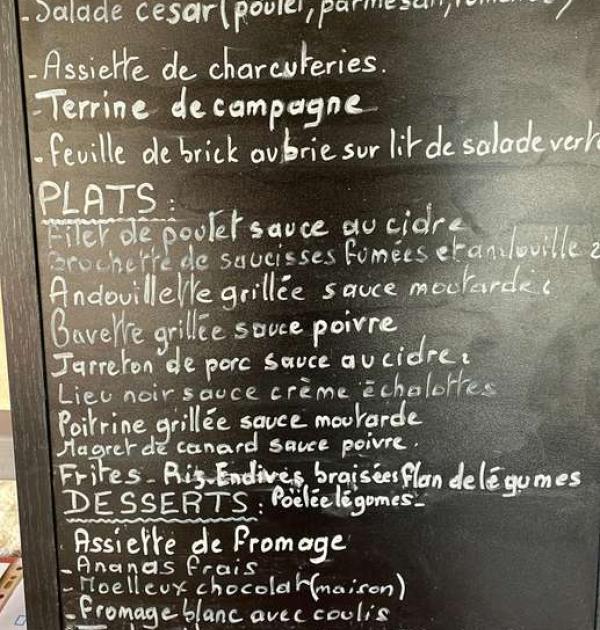 - Salade cesar (poulet, parmesan,
- Assiette de charcuteries.
- Terrine de campagne
- feuille de brick au brie sur lit de salade verte
PLATS :
Filet de poulet sauce au cidre
Brochette de saucisses fumées et andouille
Andouillette grillée sauce moutarde
Bavette grillée sauce poivre
Jarreton de porc sauce au cidre
Lieu noir sauce crème échalottes
Poitrine grillée sauce moutarde
Magret de canard sauce poivre.
Frites - Riz. Endives braisées flan de légumes
DESSERTS : Poëlée légumes -
Assiette de fromage
- Ananas frais
- Moelleux chocolat (maison)
- fromage blanc avec coulis